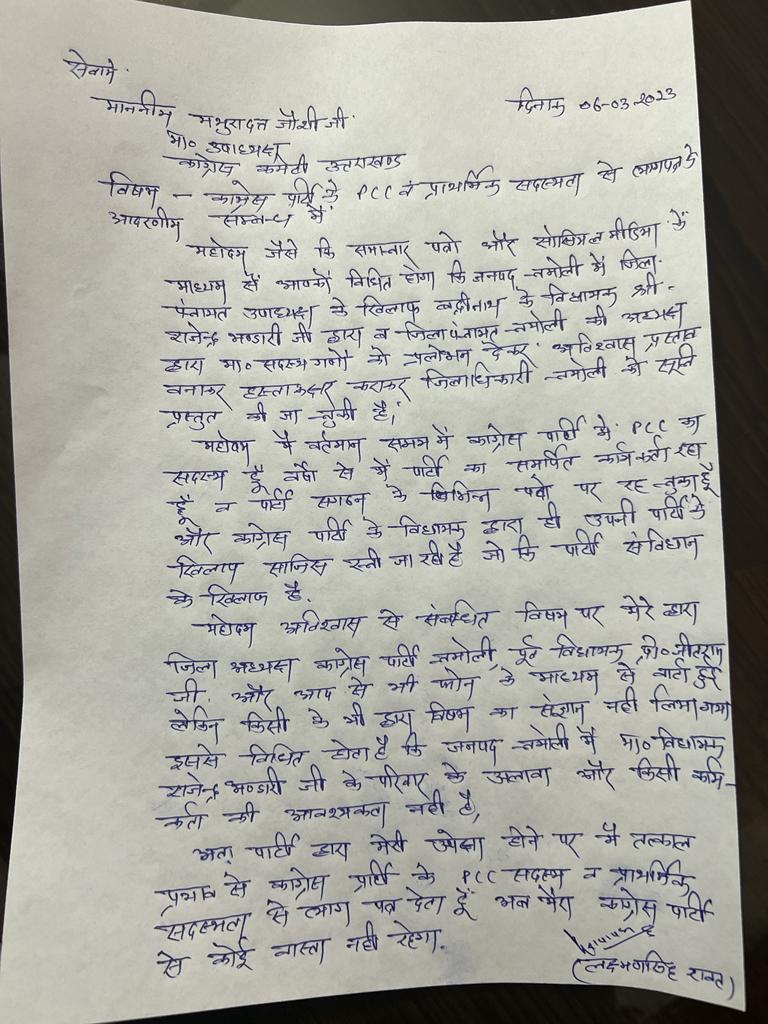 सेवामे
माननीय मथुरादत्त जोशी जी
दिनांक 06-03-2023
मा० उपाध्यक्ष
कांग्रेस कमेटी उत्तराखण्ड
विषय - कांग्रेस पार्टी के PCC व प्राथर्मिक सदस्यता से त्यागपत्र के
आदरणीय सम्बन्ध में
महोदय जैसे कि समाचार पत्रो और सोसियल मीडिया के
माध्यम से आपको विधित होगा कि जनपद चमोली में जिला
पंचायत उपाध्यक्ष के खिलाफ बद्रीनाथ के विधायक श्री -
राजेन्द्र भण्डारी जी द्वारा व जिला पंचायत चमोली की अध्यक्ष
द्वारा मा० सदस्य गणों को प्रलोभन देकर अविश्वास प्रस्ताव
बनाकर हस्ताक्षर कराकर जिलाधिकारी चमोली को
प्रस्तुत की जा चुकी है,
महोदय मैं वर्तमान समय में कांग्रेस पार्टी के PCC का
सदस्य हूँ वर्षो से मैं पार्टी का समर्पित कार्यकर्ता रहा
हूँ व पार्टी सगठन के विभिन्न पदो पर रह चुका हूँ
और कांग्रेस पार्टी के विधायक द्वारा ही अपनी पार्टी के
खिलाप साजिस रची जा रही है जो कि पार्टी संविधान
के खिलाफ है.
महोदय अविश्वास से संबन्धित विषय पर मेरे द्वारा
जिला अध्यक्ष कांग्रेस पार्टी चमोली, पूर्व विधायक प्रो० जीतराम
जी. और आप से भी फोन के माध्यम से वार्ता हुई
लेकिन किसी के भी द्वारा विषय का संज्ञान नही लिया गया
इससे विधित होता है कि जनपद चमोली में मा० विधायक
राजेन्द्र भण्डारी जी के परिवार के अलावा और किसी कार्य-
कर्ता की आवश्यकता नही है,
अत: पार्टी द्वारा मेरी उपेक्षा होने पर मैं तत्काल
प्रभाव से कांग्रेस पार्टी के PCC सदस्य व प्राथर्मिक
सदस्यता से त्याग पत्र देता हूँ अब मेरा कांग्रेस पार्टी
से कोई वास्ता नही रहेगा.
(लक्ष्मण सिंह रावत)